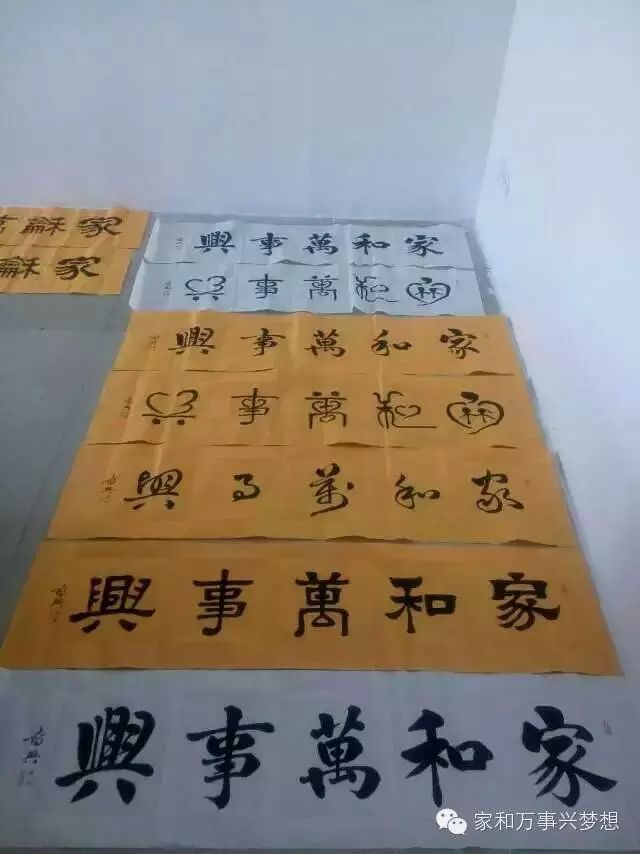 家龢萬
家龢
家和萬事興
家和萬事興
家和萬事興
家和萬事興
家和萬事興
家和萬事興
家和萬事興
家和万事兴梦想